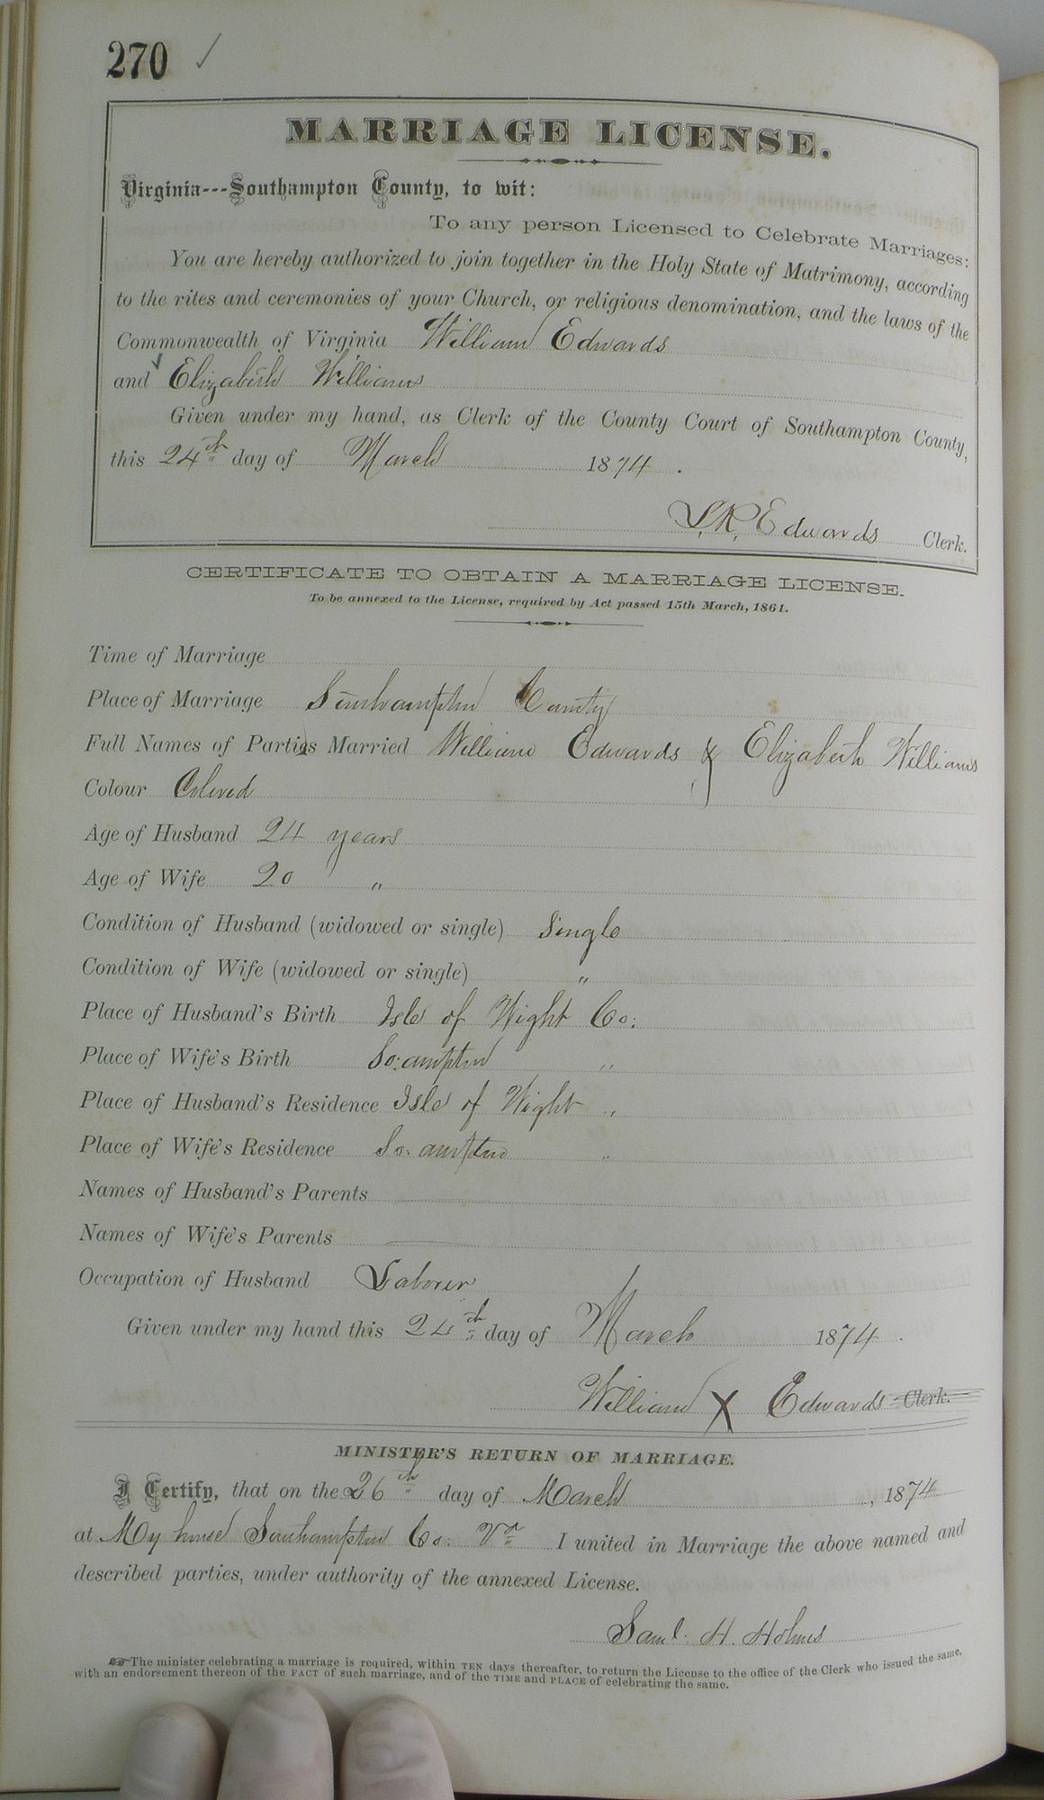 270 ✓
MARRIAGE LICENSE.
Virginia---Southampton County, to wit:
To any person Licensed to Celebrate Marriages:
You are hereby authorized to join together in the Holy State of Matrimony, according
to the rites and ceremonies of your Church, or religious denomination, and the laws of the
Commonwealth of Virginia William Edwards
and Elizabeth Williams
Given under my hand, as Clerk of the County Court of Southampton County,
this 24th day of March 1874.
L.R. Edwards Clerk.
CERTIFICATE TO OBTAIN A MARRIAGE LICENSE.
To be annexed to the License, required by Act passed 15th March, 1861.
Time of Marriage
Place of Marriage Southampton County
Full Names of Parties Married William Edwards & Elizabeth Williams
Colour Colored
Age of Husband 24 years
Age of Wife 20 "
Condition of Husband (widowed or single) Single
Condition of Wife (widowed or single) "
Place of Husband's Birth Isle of Wight Co:
Place of Wife's Birth So:ampton "
Place of Husband's Residence Isle of Wight "
Place of Wife's Residence So:ampton "
Names of Husband's Parents
Names of Wife's Parents —
Occupation of Husband Laborer
Given under my hand this 24th day of March 1874.
William X Edwards Clerk.
MINISTER'S RETURN OF MARRIAGE.
I Certify, that on the 26th day of March, 1874
at My house Southampton Co: Va I united in Marriage the above named and
described parties, under authority of the annexed License.
Saml. H. Holmes
☞ The minister celebrating a marriage is required, within TEN days thereafter, to return the License to the office of the Clerk who issued the same,
with an endorsement thereon of the FACT of such marriage, and of the TIME and PLACE of celebrating the same.